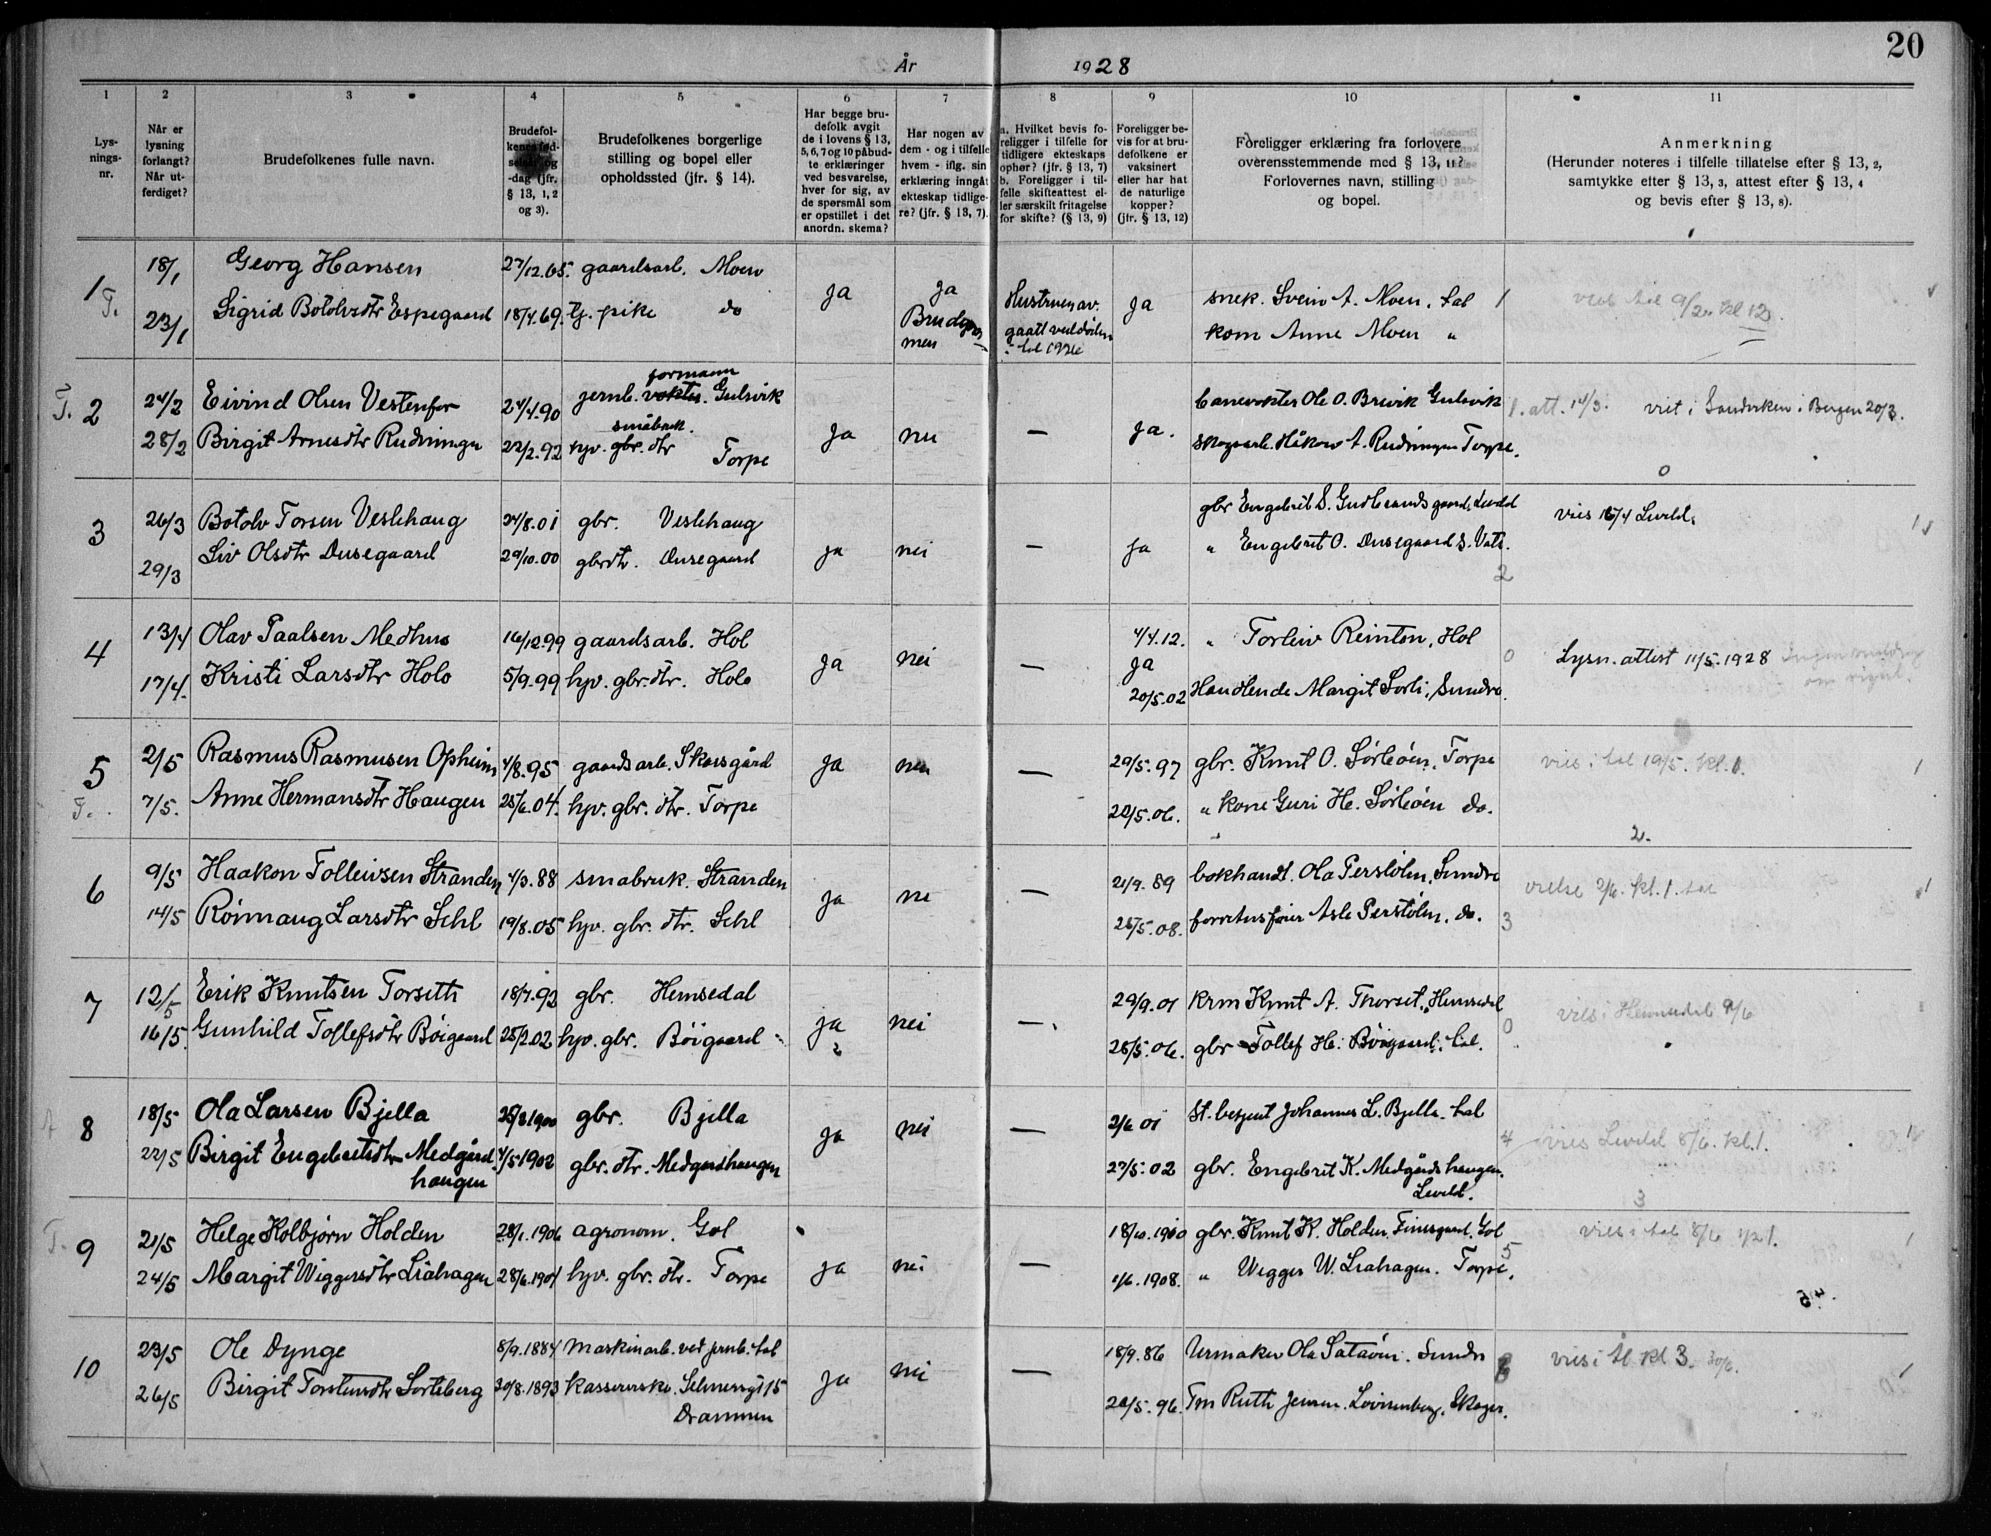 20
År 1928
1 2 3 4 5 6 7 8 9 10 11
Lys-
nings-
nr.
Når er
lysning
forlangt?
Når ut-
ferdiget?
Brudefolkenes fulle navn.
Brudefol-
kenes fød-
selsår og
-dag (jfr.
§ 13, 1, 2
og 3).
Brudefolkenes borgerlige
stilling og bopel eller
opholdssted (jfr. § 14).
Har begge bru-
defolk avgit
de i lovens § 13,
5, 6, 7 og 10 påbud-
te erklæringer
ved besvarelse,
hver for sig, av
de spørsmål som
er opstillet i det
anordn. skema?
Har nogen av
dem - og i tilfelle
hvem - iflg. sin
erklæring inngåt
ekteskap tidlige-
re? (jfr. § 13, 7).
a. Hvilket bevis fo-
religger i tilfelle for
tidligere ekteskaps
ophør? (jfr. § 13, 7)
b. Foreligger i til-
felle skifteattest el-
ler særskilt fritagelse
for skifte? (§ 13, 9)
Foreligger be-
vis for at bru-
defolkene er
vaksinert
eller har hat
de naturlige
kopper?
(jfr. § 13, 12)
Foreligger erklæring fra forlovere
overensstemmende med § 13, 11?
Forlovernes navn, stilling
og bopel.
Anmerkning
(Herunder noteres i tilfelle tillatelse efter § 13, 2,
samtykke efter § 13, 3, attest efter § 13, 4
og bevis efter § 13, 8).
1 18/1 Georg Hansen 27/12.65. gaardsarb. Moen ja ja Hustruen av- ja snek. Svein A. Moen, Aal 1 viet Aal 9/2. kl 12
T. 23/1 Sigrid Botolvdtr Espegaard 18/4.69. tj. pike do Brudgom- gaatt ved døden kom Anne Moen "
men i Aal 1926
formann
T. 2 24/2 Eivind Olsen Vestenfor 24/4.90 jernb. vokter. Gulsvik banevokter Ole O. Brevik Gulsvik 1. att. 14/3. viet i Sandviken i Bergen 20/3.
småbruk.
28/2 Birgit Arnesdtr Rudningen 22/2.92 hjv. gbr. dtr Torpe ja nei — ja. skogsarb. Håkon A. Rudningen Torpe. 0
3 26/3 Botolv Torsen Veslehaug 24/8.01 gbr. Veslehaug gbr Engebret S. Gudbrandsgaard, Leveld vies 16/4 Leveld.
29/3 Liv Olsdtr Dusegaard 29/10.00 gbrdtr. Dusegaard ja nei — ja " Engebret O. Dusegaard S. Vats. 2
4 13/4 Olav Paalsen Medhus 16/12.99 gaardsarb. Hol ja nei — 4/4.12. ja " Torleiv Reinton, Hol 0 Lysn. attest 11/5.1928
17/4. Kristi Larsdtr Holo 5/9.99 hjv. gbr. dtr. Holo 20/5.02 Handlende Margit Sorli, Sundre.
5 2/5 Rasmus Rasmusen Opheim 4/8.95 gaardsarb. Skarsgård ja nei — 29/5.97 gbr. Knut O. Sørbøen, Torpe vies i Aal 19/5. kl. 1. 1
T. 7/5. Anne Hermansdtr Haugen 25/6.04. hjv. gbr. dtr. Torpe 22/5.06. " kone Guri H. Sørbøen do. 2.
6 9/5 Haakon Tolleivsen Stranden 4/3.88 småbruk. Stranden ja nei — 21/9.89 bokhandl. Ola Perstølen, Sundre vielse 2/6. kl. 1. Aal 1
14/5 Rönnaug Larsdtr Sehl 19/8.05 hjv. gbr. dtr. Sehl 25/5.08. forretnsfører Asle Perstølen, do. 3
7 12/5 Erik Knutsen Torseth 18/7.92 gbr. Hemsedal ja nei — 29/9.01 Krm Knut A. Thorset, Hemsedal vies i Hemsedal 9/6
16/5. Gunhild Tollefsdtr Böigaard 25/2.02 hjv. gbr. Böigaard 25/5.06. gbr Tollef H. Böigaard, Aal. 0
8 18/5 Ola Larsen Bjella 25/8 1900 gbr. Bjella ja nei — 2/6 01 st. betjent Johannes L. Bjella. Aal
22/5 Birgit Engebretsdtr Medgård- 4/5 1902 gbr. dtr. Medgardhaugen 27/5.02 gbr. Engebret K. Medgårdshaugen. 4 vies Leveld 8/6. kl. 1.
haugen Leveld. 3
T. 9 21/5 Helge Kolbjørn Holden 28/1.1906 agronom. Gol ja nei — 18/10.1910 gbr. Knut K. Holden, Finnegaard, Gol 5 vies i Aal 8/6 1/2 1.
24/5 Margit Wiggersdtr Liahagen 28/6.1907 hjv. gbr. dtr. Torpe 1/6.1908. " Wigger W. Liahagen. Torpe.
10 23/5 Ole Dynge 8/9.1884 maskinarb. ved jernb. Aal ja nei — 18/9.86 Urmaker Ola Sataøien. Sundre vies i Ål kl 3. 30/6.
26/5 Birgit Torsteinsdtr Sorteberg 30/8.1893 kassererske. Selmersgt 15 20/5.96. Frn Ruth Jensen, Lövenberg, Skoger.
Drammen